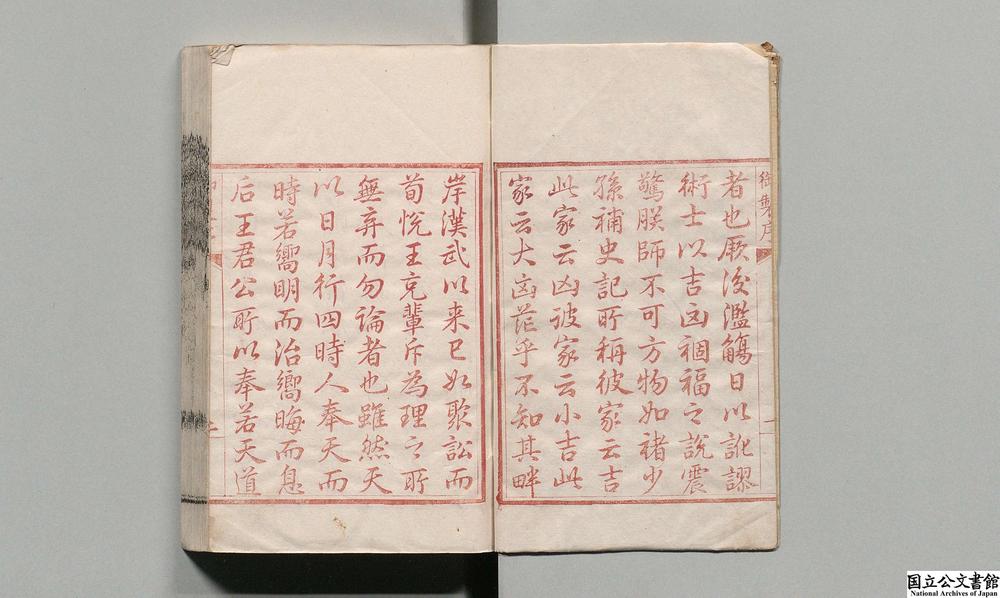 御製序
者也厥後濫觴日以訛謬
術士以吉凶禍福之説震
驚朕師不可方物如褚少
孫補史記所稱彼家云吉
此家云凶彼家云小吉此
家云大凶茫乎不知其畔
岸漢武以来已如聚訟而
荀悦王充輩斥為理之所
無弃而勿論者也雖然天
以日月行四時人奉天而
時若嚮明而治嚮晦而息
后王君公所以奉若天道
国立公文書館
National Archives of Japan